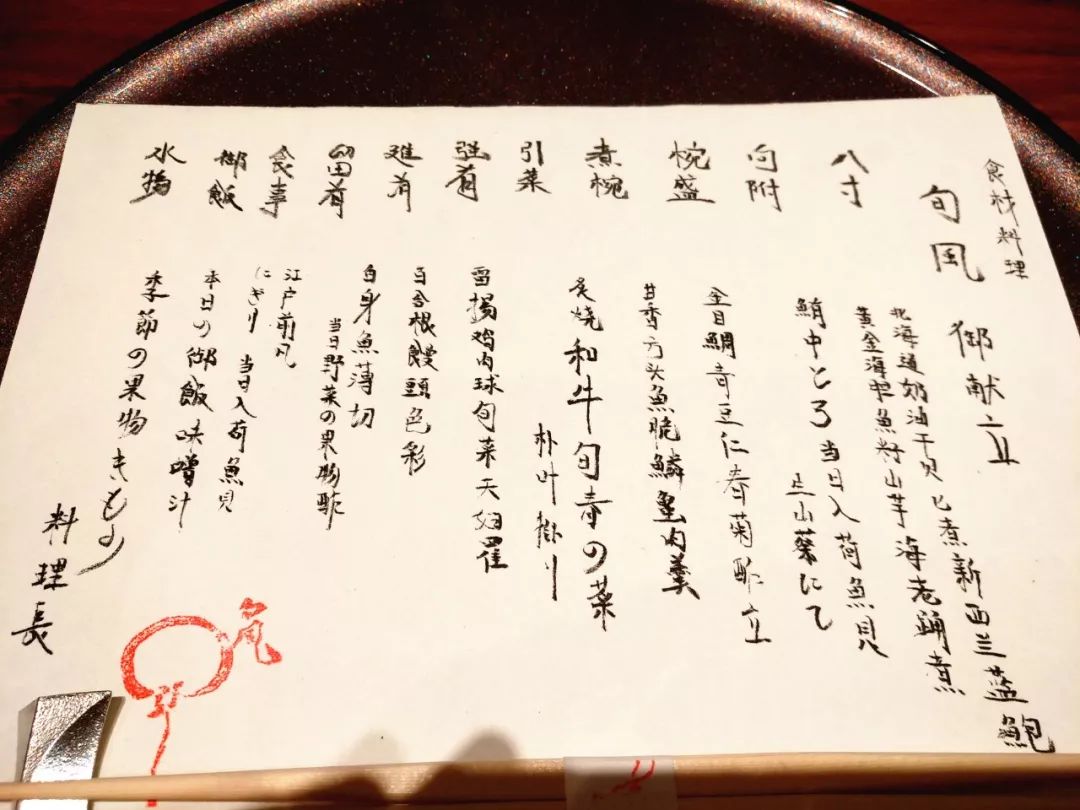 食材料理
旬風 御献立
八寸
北海道奶油干贝 已煮新西兰蓝鮑
黄金海胆魚籽山芋海老踊煮
向附
鮪中とろ 当日入荷魚貝
山葵にて
椀盛
金目鯛青豆仁春菊酢立
煮椀
甘香方头魚脆鱗蟹肉羹
引菜
炙焼和牛旬春の菜
朴叶掛り
强肴
雷揚鸡肉球旬菜天婦羅
進肴
百合根饅頭色彩
留肴
白身魚薄切
当日野菜の果物酢
食事
江户前凡
にぎり 当日入荷魚貝
御飯
本日の御飯 味噌汁
水物
季節の果物 きもの
料理長